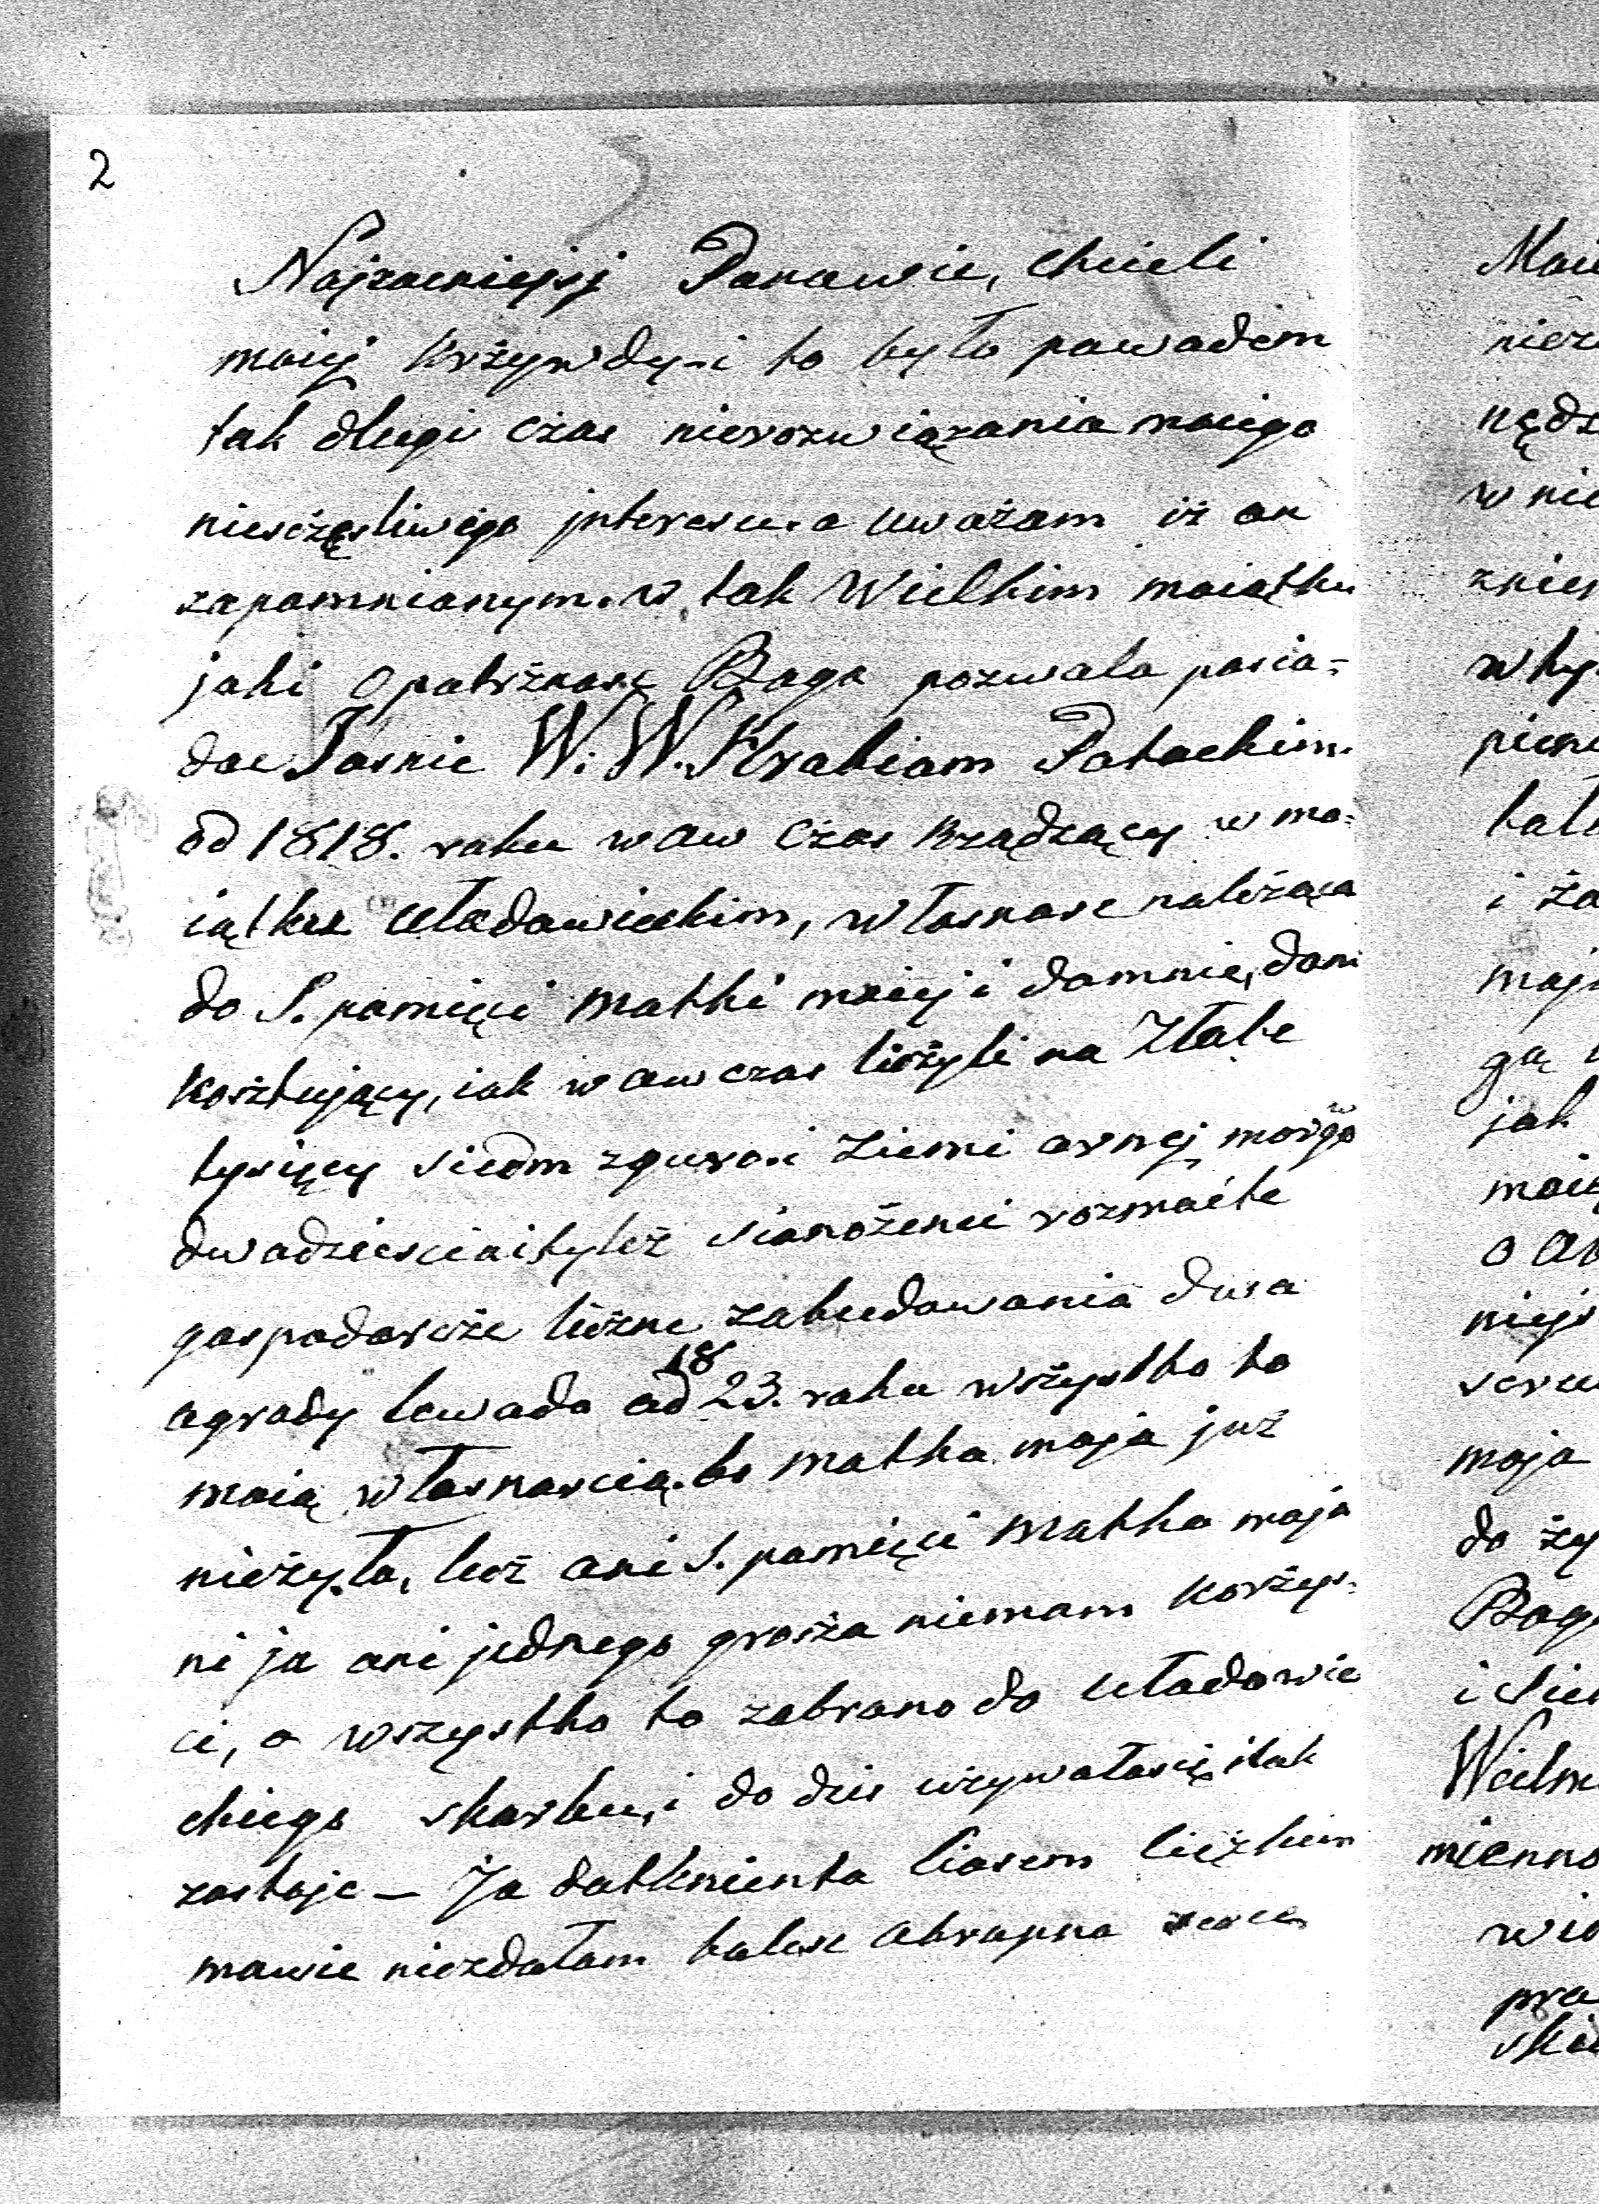 2
Najzacniejsj Panowie, chcieli
moiej krżywdy-i to było powodem
tak długi czas nierozwiązania moiego
niesczęsliwego jnteresu. a uważam iż on
zapomnianym. w tak Wielkim maiątku
jaki Opatrżnosc Boga pozwala posia=
dac Jasnie W. W. Hrabiam Potockim.
od 1818. roku w ow czas Rządzący w ma=
iątku Uładowieckim, własnosc należąca
do S. pamięci matki moiej i domnie, dom
kosztujący, iak w ow czas liczyli na Złote
tysięcy siedm zguro. i Ziemi ornej morgo
dwadziescia i tyleż sianożenci rozmaite
gospodarcże liczne zabudowania dwa
ogrody lewada od 1823. roku wszystko to
moią własnoscią. bo matka moja już
nieżyła, lecz ani S. pamięci matka moja
ni ja ani jednego grosza niemam korżys=
ci, a wszystko to zabrano do Uładowie
ckiego skarbu, i do dzis używałosię i tak
zostaje — Ja dotknienta Ciosem Ciężkim
mowie niezdołam bolesc Okropna serce
Moie
nędz
w nie
i ża
gą
jak
moie
moja
do ży
Boga
Wielm
mienno
wie
pra